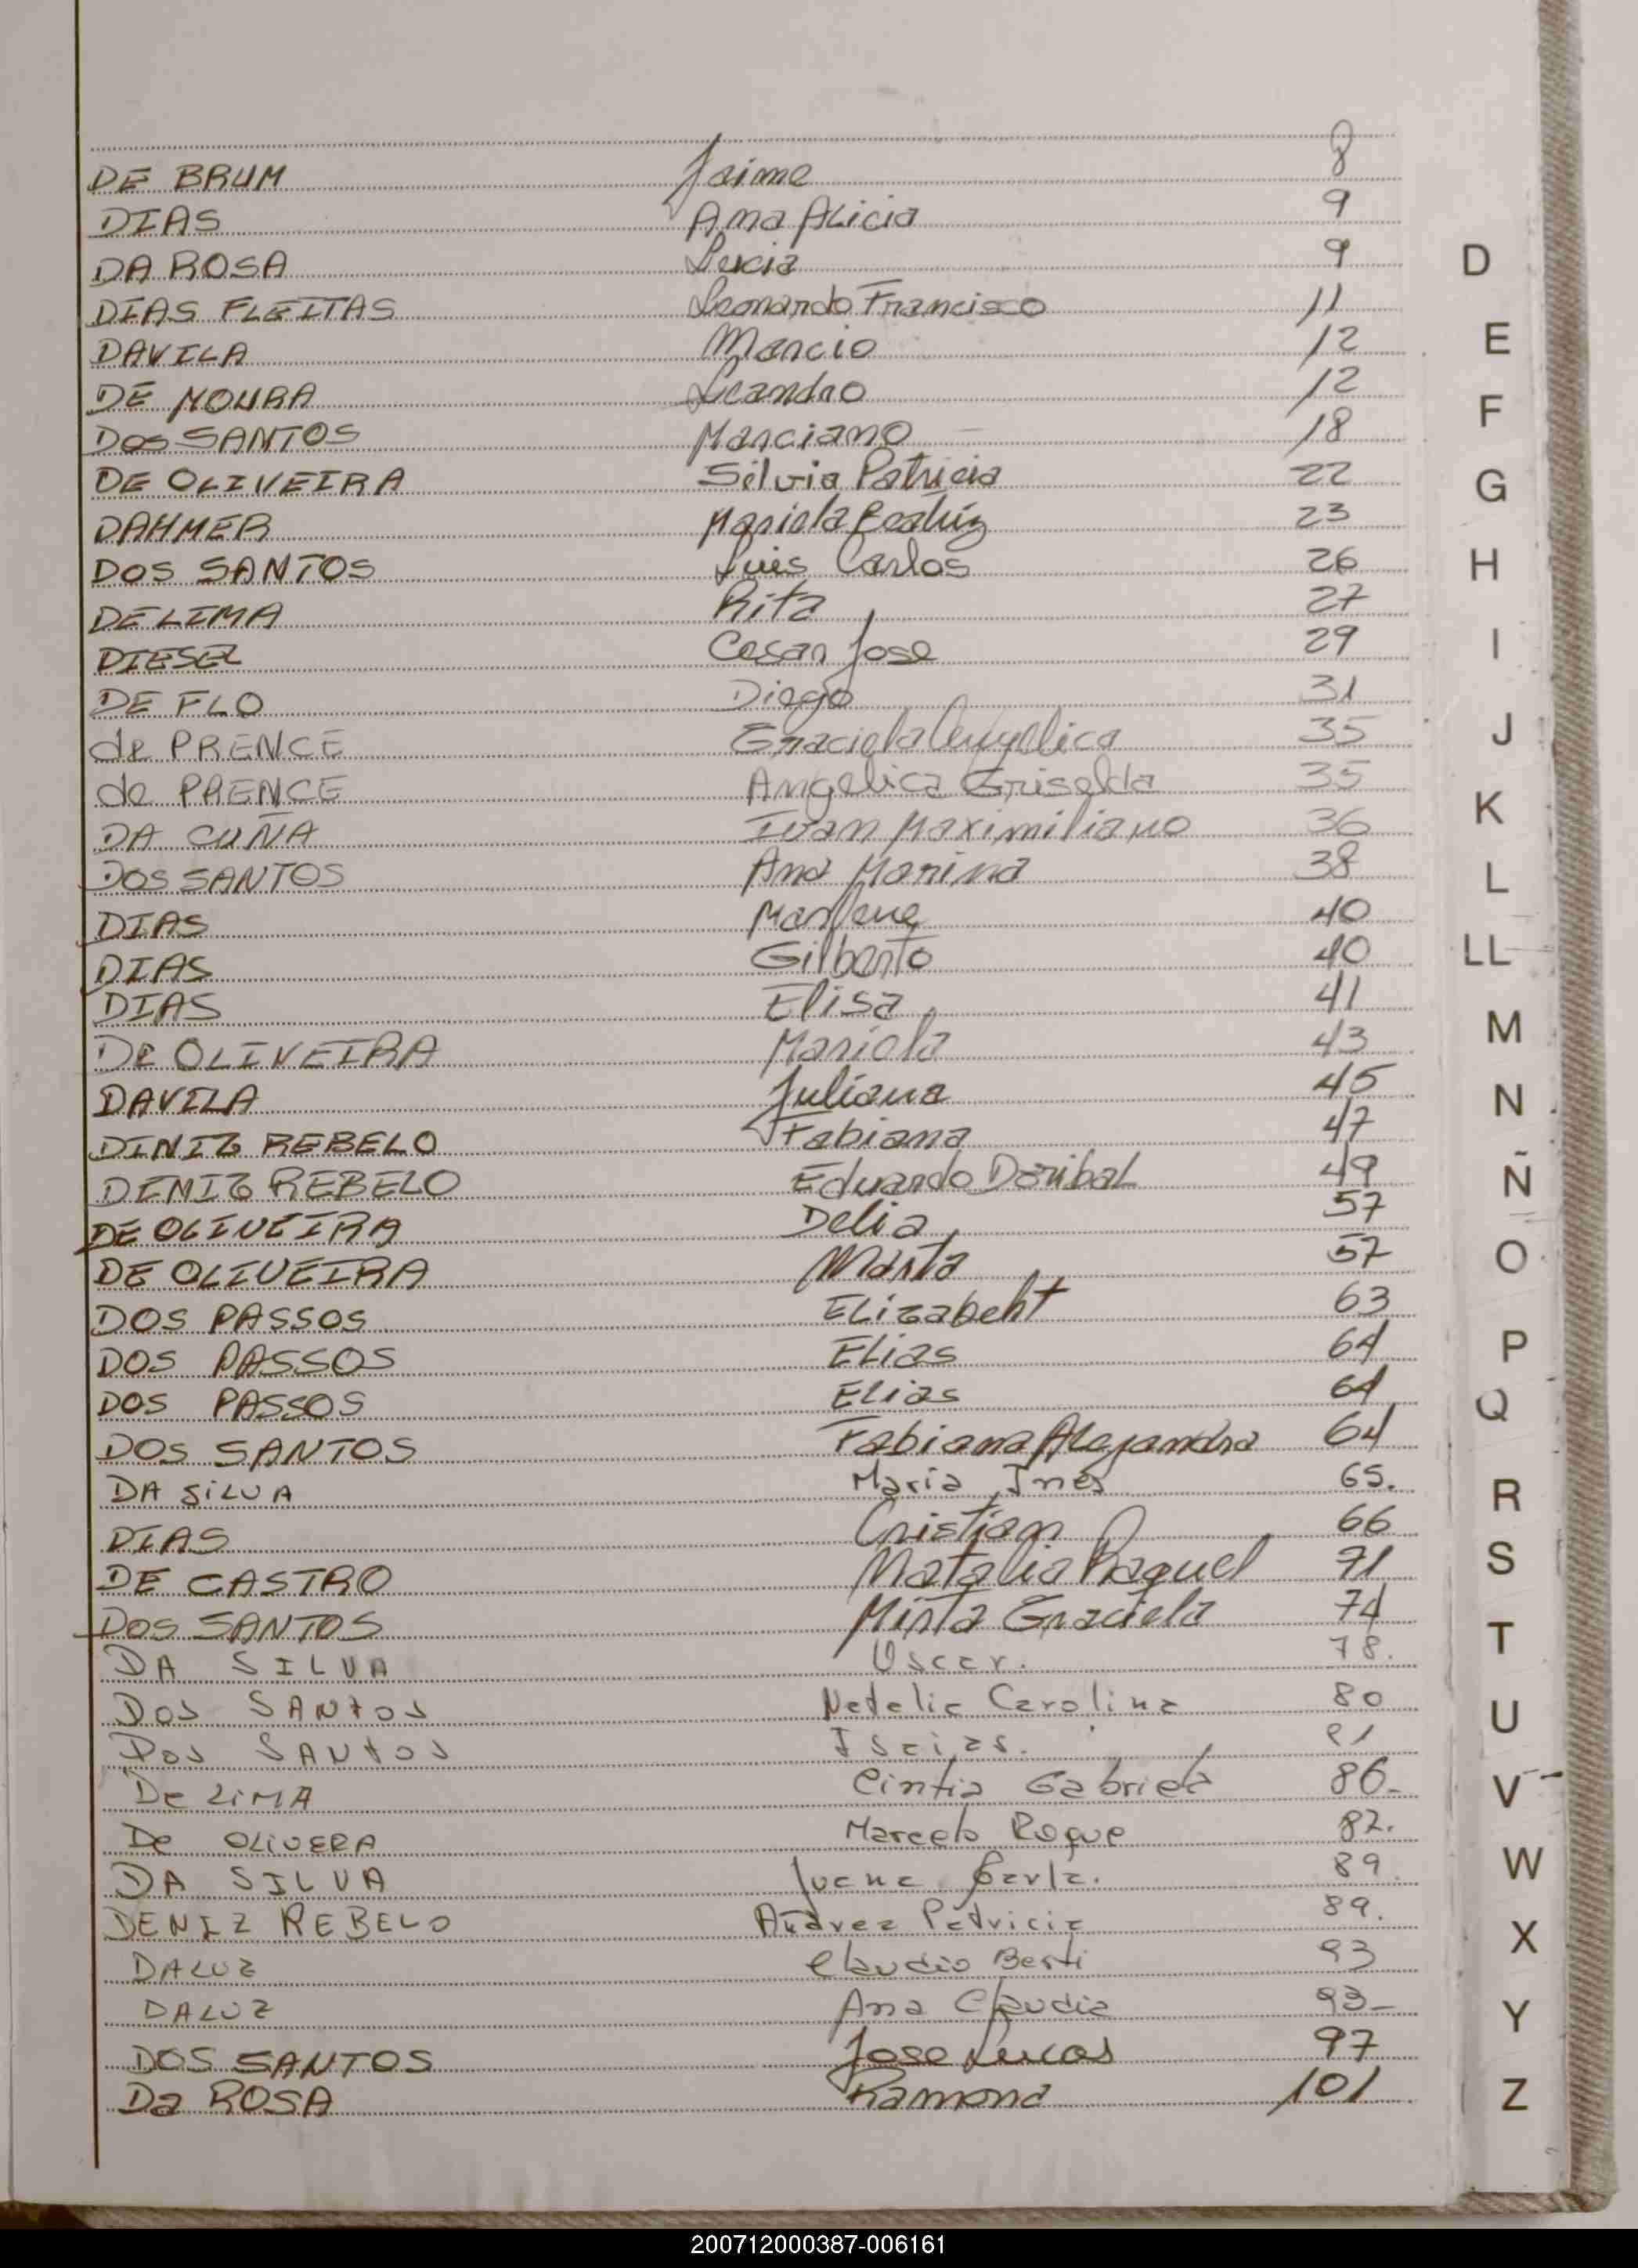 DE BRUM Jaime 8
DIAS Ana Alicia 9
DA ROSA Lucia 9
DIAS FLEITAS Leonardo Francisco 11
DAVILA Marcio 12
DE MOURA Leandro 12
Dos SANTOS Marciano 18
DE OLIVEIRA Silvia Patricia 22
DAHMER Mariela Beatriz 23
DOS SANTOS Luis Carlos 26
DE LIMA Rita 27
DIESEL Cesar Jose 29
DE FLO Diego 31
de PRENCE Graciela Angelica 35
de PRENCE Angelica Griselda 35
DA CUÑA Ivan Maximiliano 36
DOS SANTOS Ana Marina 38
DIAS Marlene 40
DIAS Gilberto 40
DIAS Elisa 41
De OLIVEIRA Mariela 43
DAVILA Juliana 45
DINIZ REBELO Fabiana 47
DENIZ REBELO Eduardo Doribal 49
DE OLIVEIRA Delia 57
DE OLIVEIRA Marta 57
DOS PASSOS Elizabeht 63
DOS PASSOS Elias 64
DOS PASSOS Elias 64
DOS SANTOS Fabiana Alejandra 64
DA SILVA Maria Ines 65.
DIAS Cristian 66
DE CASTRO Natalia Raquel 71
DOS SANTOS Mirta Graciela 74
DA SILVA Oscar. 78.
Dos SANtos Natalia Carolina 80
Dos SANtos Isaias. 81
De LiMA Cintia Gabriela 86-
De OLIVERA Marcelo Roque 87.
DA SILVA Juana Carla. 89.
DENIZ REBELO Andrea Patricia 89.
DALUZ Claudio Berti 93
DALUZ Ana Claudia 93-
DOS SANTOS Jose Lucas 97
Da ROSA Ramona 101
D
E
F
G
H
I
J
K
L
LL
M
N
Ñ
O
P
Q
R
S
T
U
V
W
X
Y
Z
200712000387-006161